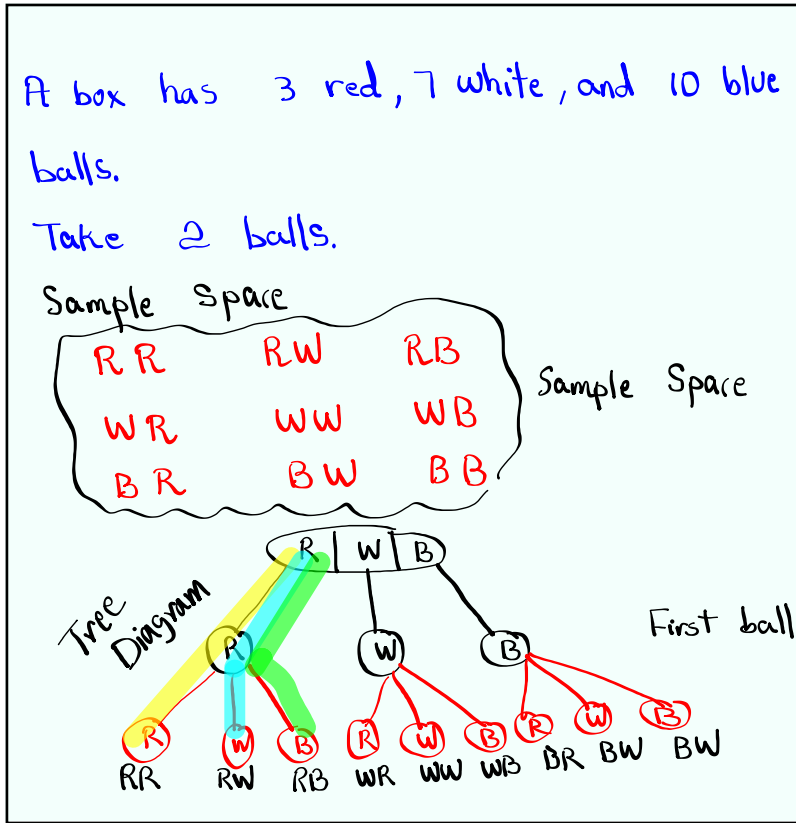 A box has 3 red, 7 white, and 10 blue
balls.
Take 2 balls.
Sample Space
RR RW RB
WR WW WB
BR BW BB
Sample Space
R W B
Tree
Diagram
R W B
First ball
R W B R W B R W B
RR RW RB WR WW WB BR BW BW